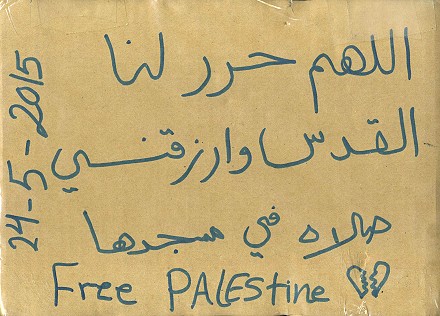 اللهم حرر لنا
القدس وارزقني
صلاه في مسجدها
Free PALEStine
24-5-2015